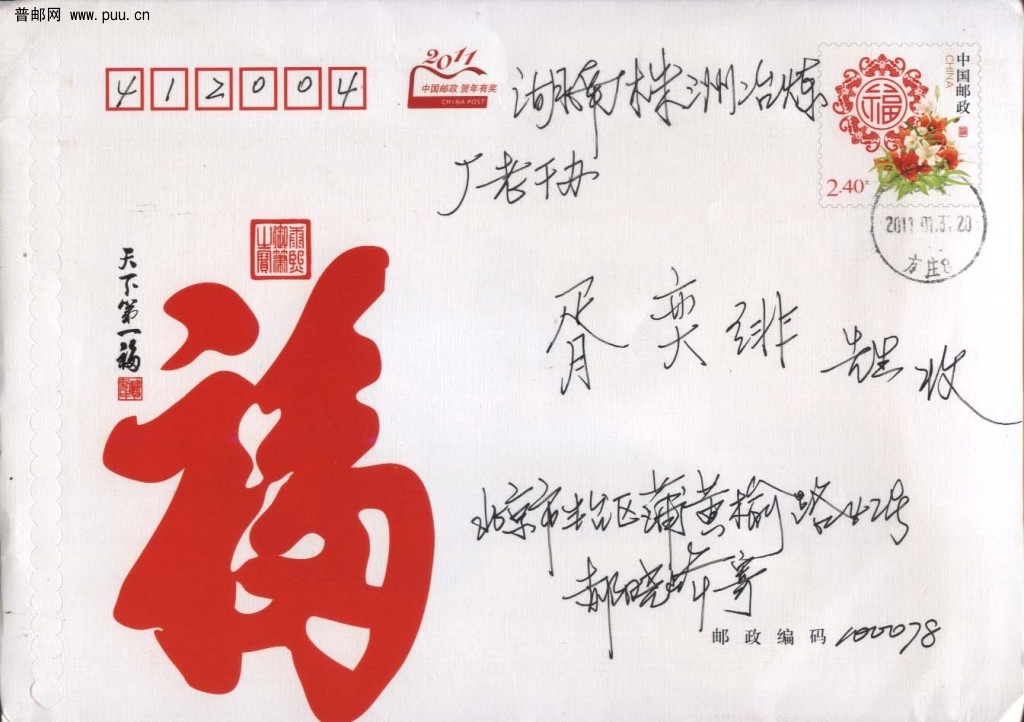 普邮网 www.puu.cn
412004
2011
中国邮政 贺年有奖
CHINA POST
湖南株洲冶炼
厂老干办
中国邮政
CHINA
福
2.40元
2011.01.3 .20
方庄
康熙御笔之宝
天下第一福
福
胥奕绯 先生 收
北京市丰台区蒲黄榆路 号
郝晓 寄
邮政编码 100078